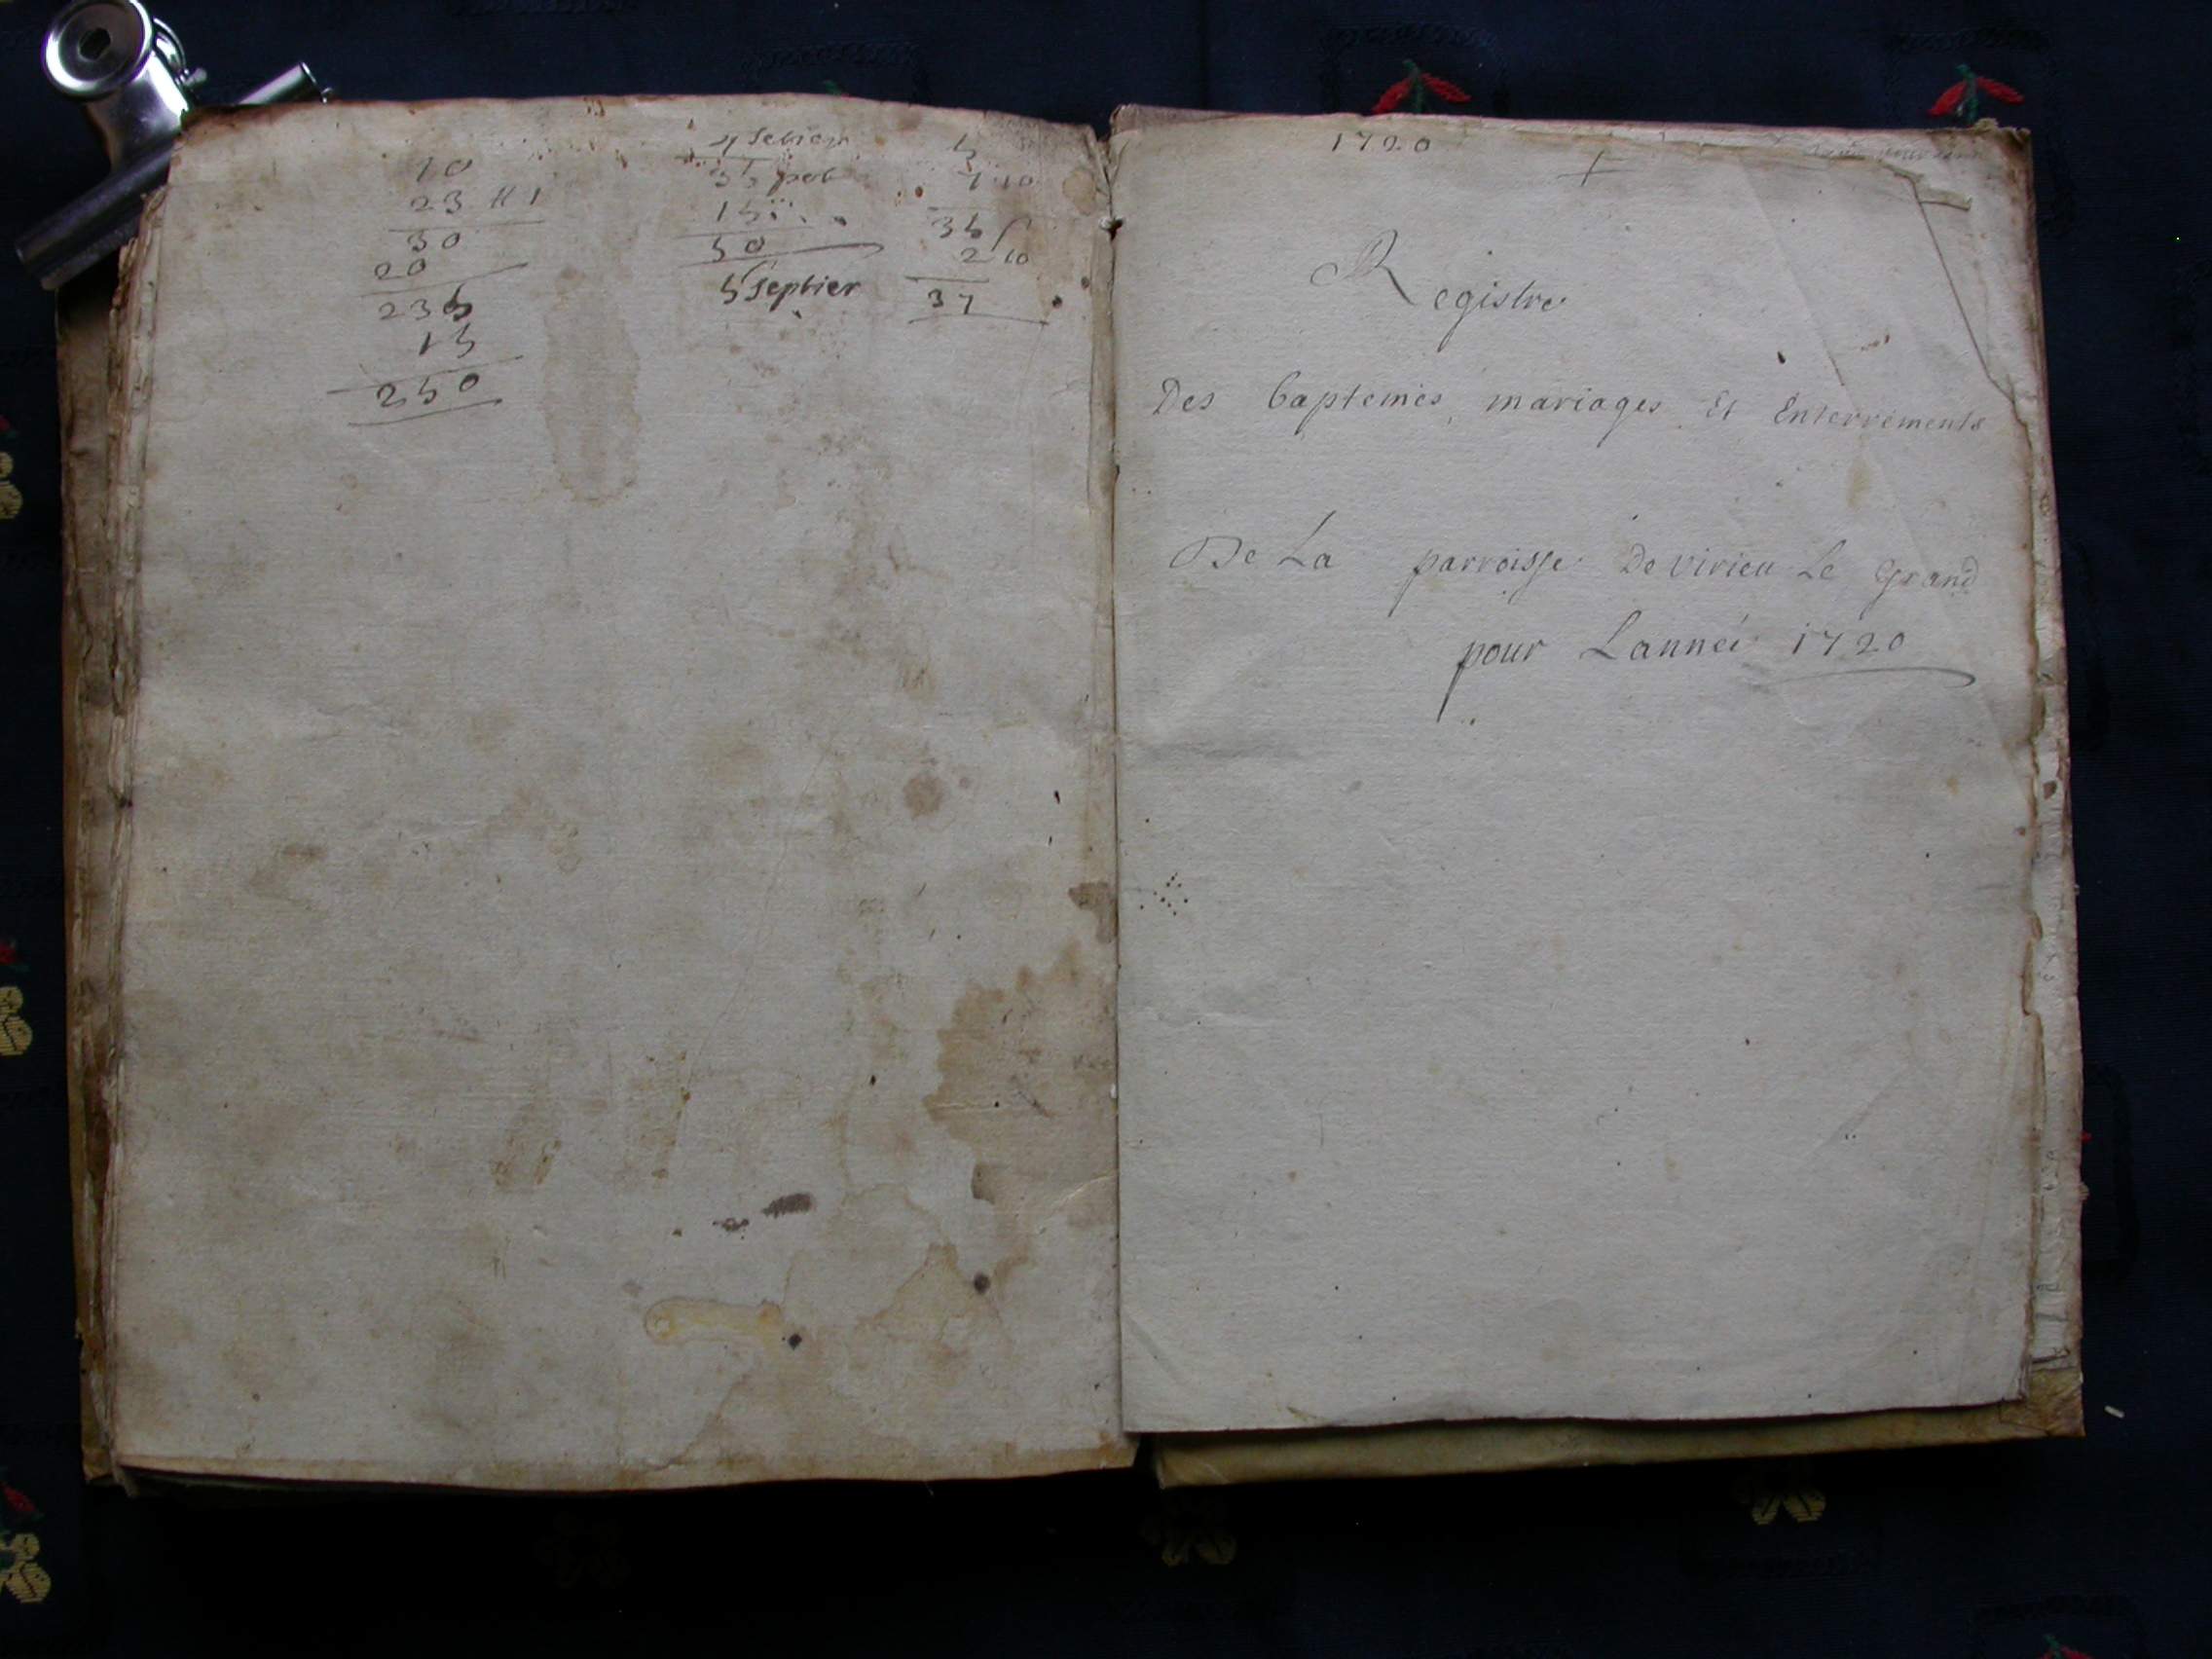 10
23 # 1
30
20
235
15
250
4 setier
35 pot
15
50
5 septier
5
7 10
35
2 10
37
1720
Registre
Des baptemes mariages Et Enterrements
De La parroisse De virieu Le Grand
pour Lanneé 1720